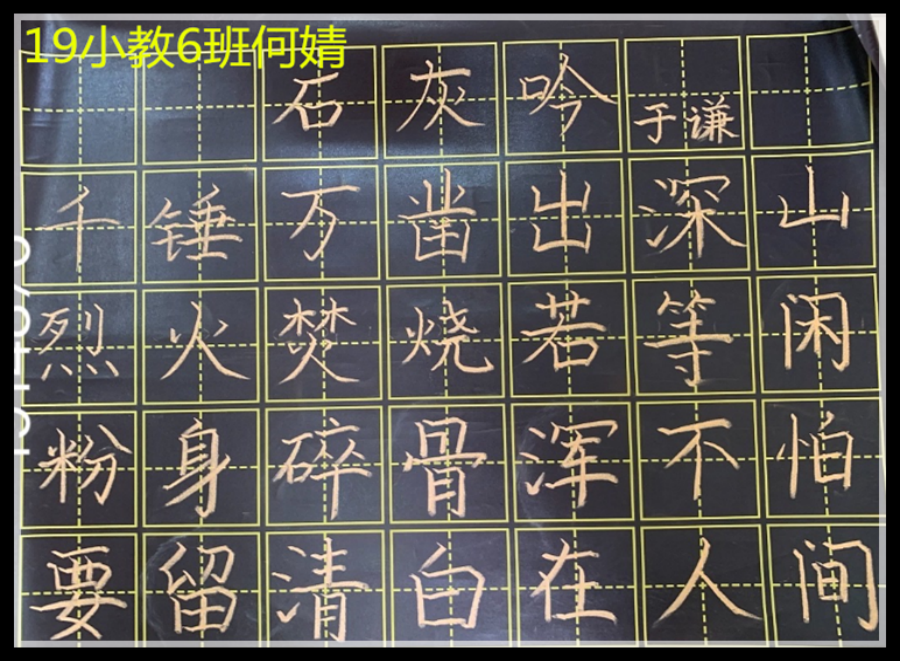 19小教6班何婧
石灰吟
于谦
千锤万凿出深山
烈火焚烧若等闲
粉身碎骨浑不怕
要留清白在人间